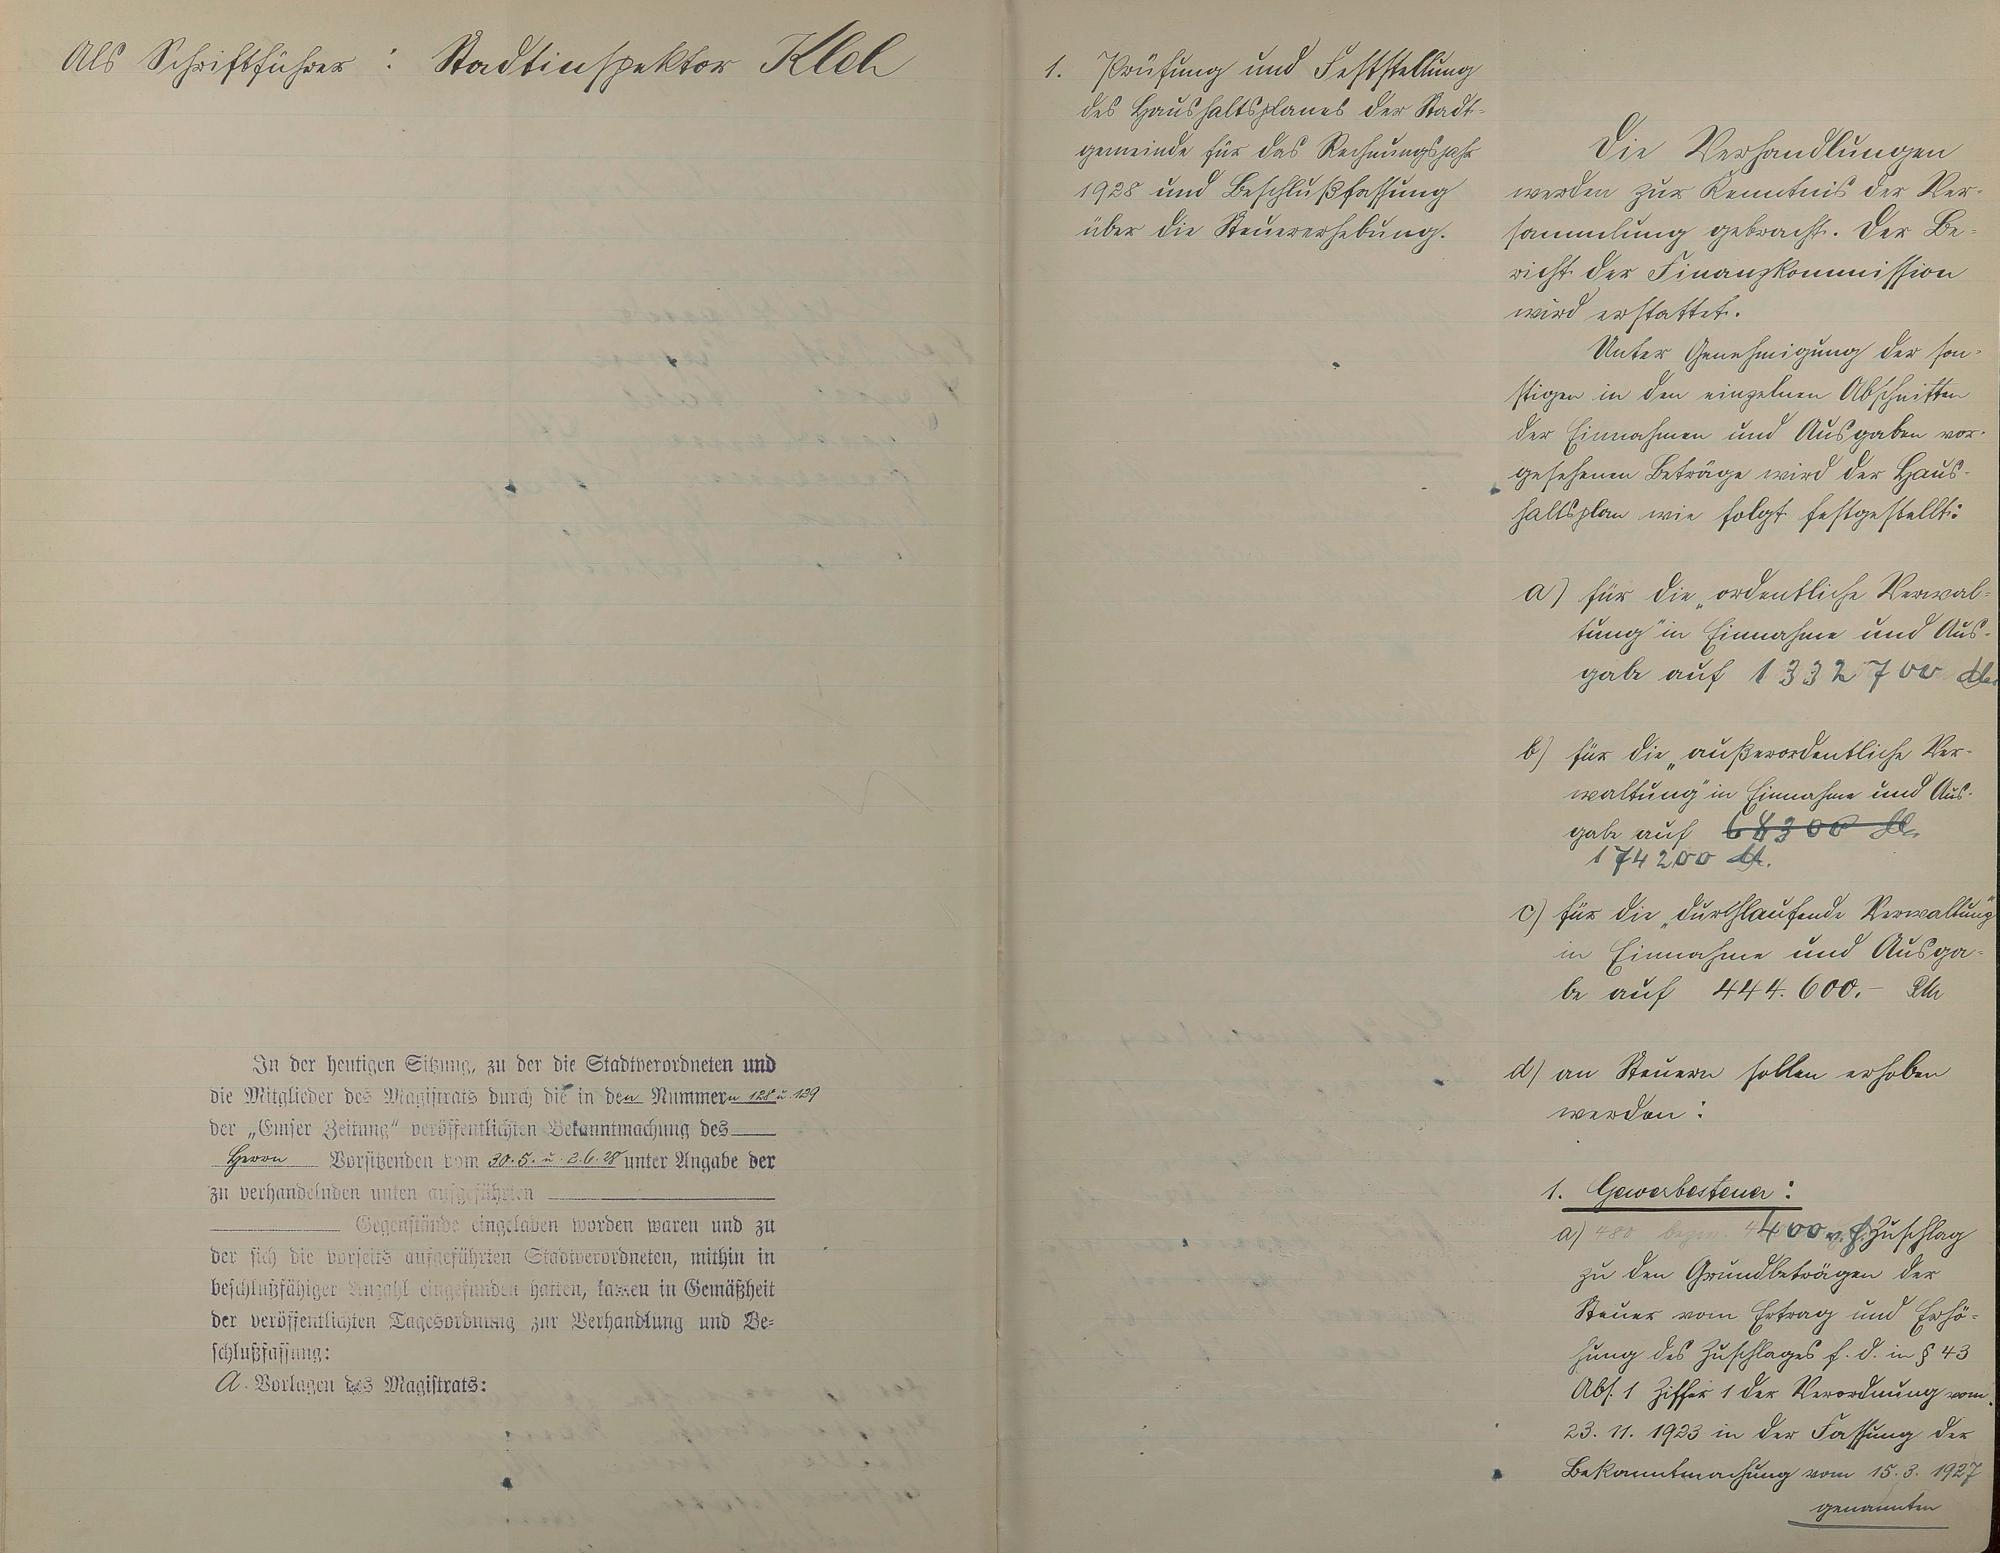 Als Schriftführer : Stadtinspektor Kleh
In der heutigen Sitzung, zu der die Stadtverordneten und
die Mitglieder des Magistrats durch die in den Nummern 128 u. 129
der „Emser Zeitung“ veröffentlichten Bekanntmachung des
Herrn Vorsitzenden vom 30.5. u. 2.6.28 unter Angabe der
zu verhandelnden unten aufgeführten
Gegenstände eingeladen worden waren und zu
der sich die vorseits aufgeführten Stadtverordneten, mithin in
beschlußfähiger Anzahl eingefunden hatten, kamen in Gemäßheit
der veröffentlichten Tagesordnung zur Verhandlung und Be-
schlußfassung:
A. Vorlagen des Magistrats:
1. Prüfung und Feststellung
des Haushaltsplanes der Stadt-
gemeinde für das Rechnungsjahr
1928 und Beschlußfassung
über die Steuererhebung.
Die Verhandlungen
werden zur Kenntnis der Ver-
sammlung gebracht. Der Be-
richt der Finanzkommission
wird erstattet.
Unter Genehmigung der son-
stigen in den einzelnen Abschnitten
der Einnahmen und Ausgaben vor-
gesehenen Beträge wird der Haus-
haltsplan wie folgt festgestellt:
a) für die „ordentliche Verwal-
tung“ in Einnahme und Aus-
gabe auf 1332700 M.
b) für die „außerordentliche Ver-
waltung“ in Einnahme und Aus-
gabe auf 68300 M.
174200 M.
c) für die „durchlaufende Verwaltung“
in Einnahme und Ausga-
be auf 444.600.- RM
d) an Steuern sollen erhoben
werden:
1. Gewerbesteuer:
a) 480 bezw. 400 v. H. Zuschlag
zu den Grundbeträgen der
Steuer vom Ertrag und Erhö-
hung des Zuschlages f. d. in § 43
Abs. 1 Ziffer 1 der Verordnung vom
23. 11. 1923 in der Fassung der
Bekanntmachung vom 15. 3. 1927
genannten